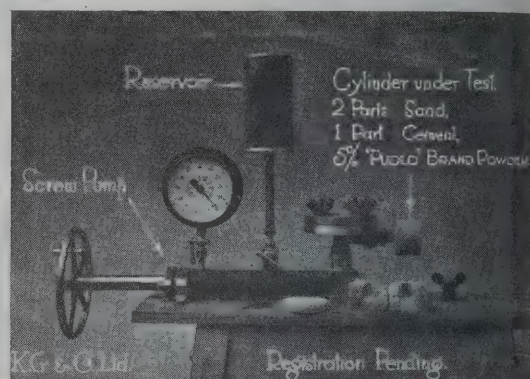 Reservoir
Cylinder under Test.
2 Parts Sand,
1 Part Cement,
5% 'PUDLO' BRAND POWDER
Screw Pump
KG & Co Ltd.
Registration Pending.